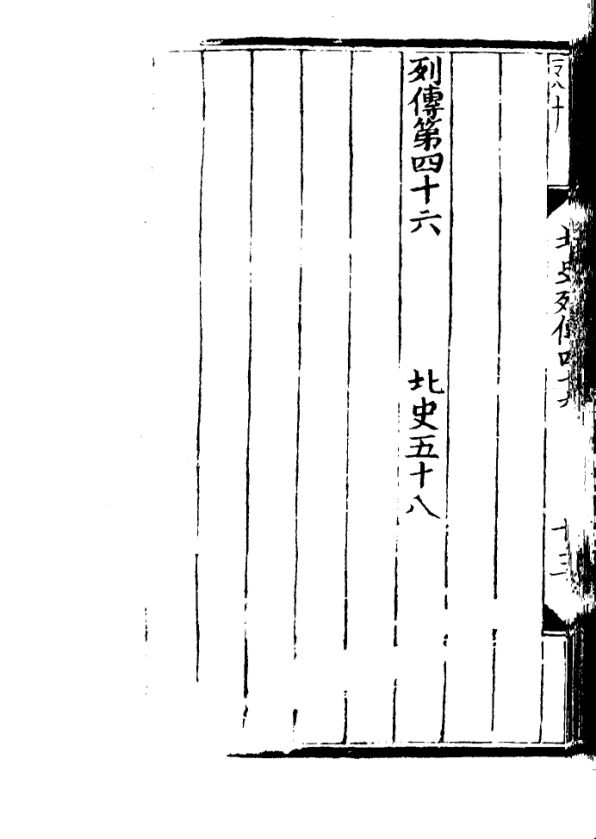 北史列傳四十六
十三
列傳第四十六 北史五十八